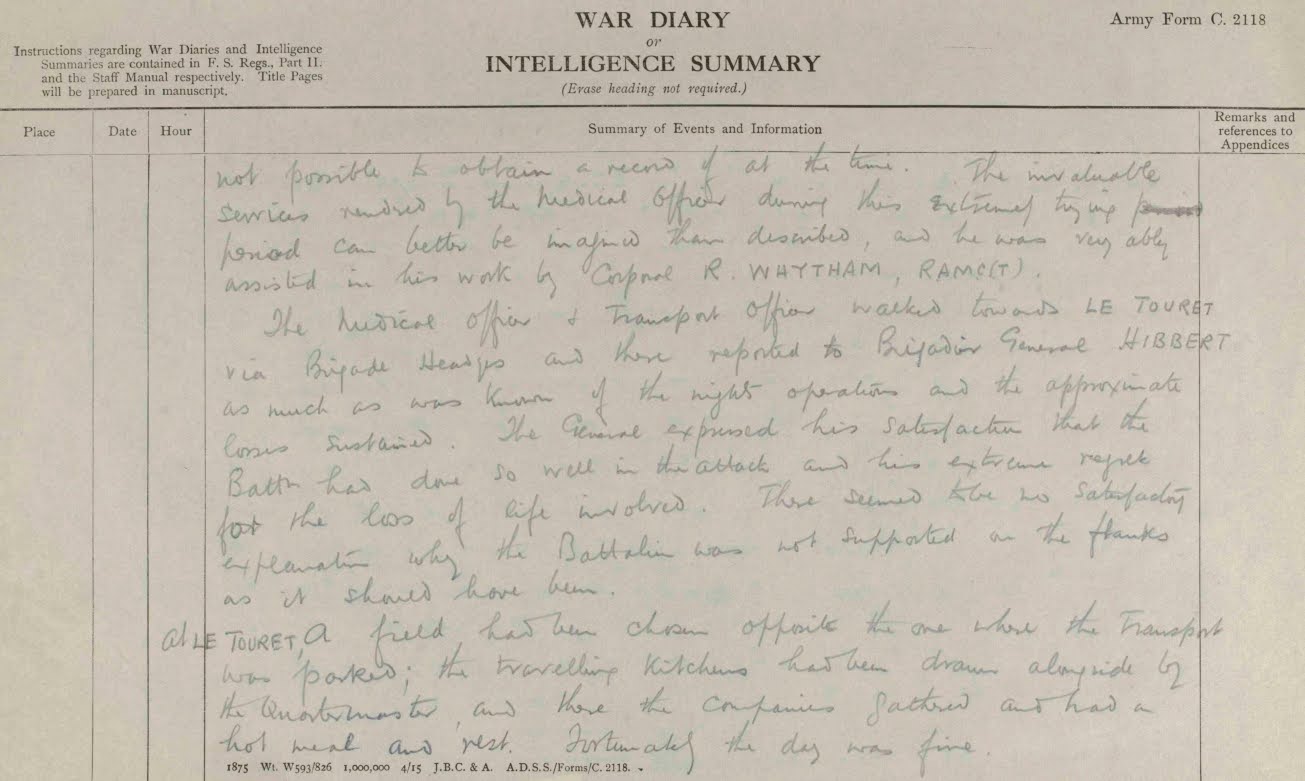 WAR DIARY
or
INTELLIGENCE SUMMARY
(Erase heading not required.)
Army Form C. 2118
Instructions regarding War Diaries and Intelligence
Summaries are contained in F. S. Regs., Part II.
and the Staff Manual respectively. Title Pages
will be prepared in manuscript.
Place Date Hour Summary of Events and Information Remarks and
references to
Appendices
not possible to obtain a record of at the time. The invaluable
services rendred by the Medical Officer during this extremely trying
period can better be imagined than described, and he was very ably
assisted in his work by Corporal R. WHYTHAM, RAMC(T).
The Medical Officer & Transport Officer walked towards LE TOURET
via Brigade Headqrs and there reported to Brigadier General HIBBERT
as much as was known of the night operations and the approximate
losses sustained. The General expressed his satisfaction that the
Battn had done so well in the attack and his extreme regret
for the loss of life involved. There seemed to be no satisfactory
explanation why the Battalion was not supported on the flanks
as it should have been.
At LE TOURET, A field had been chosen opposite the one where the Transport
was parked; the travelling kitchens had been drawn alongside by
the Quartermaster, and there the Companies gathered and had a
hot meal and rest. Fortunately the day was fine.
1875 Wt. W593/826 1,000,000 4/15 J.B.C. & A. A.D.S.S./Forms/C. 2118.